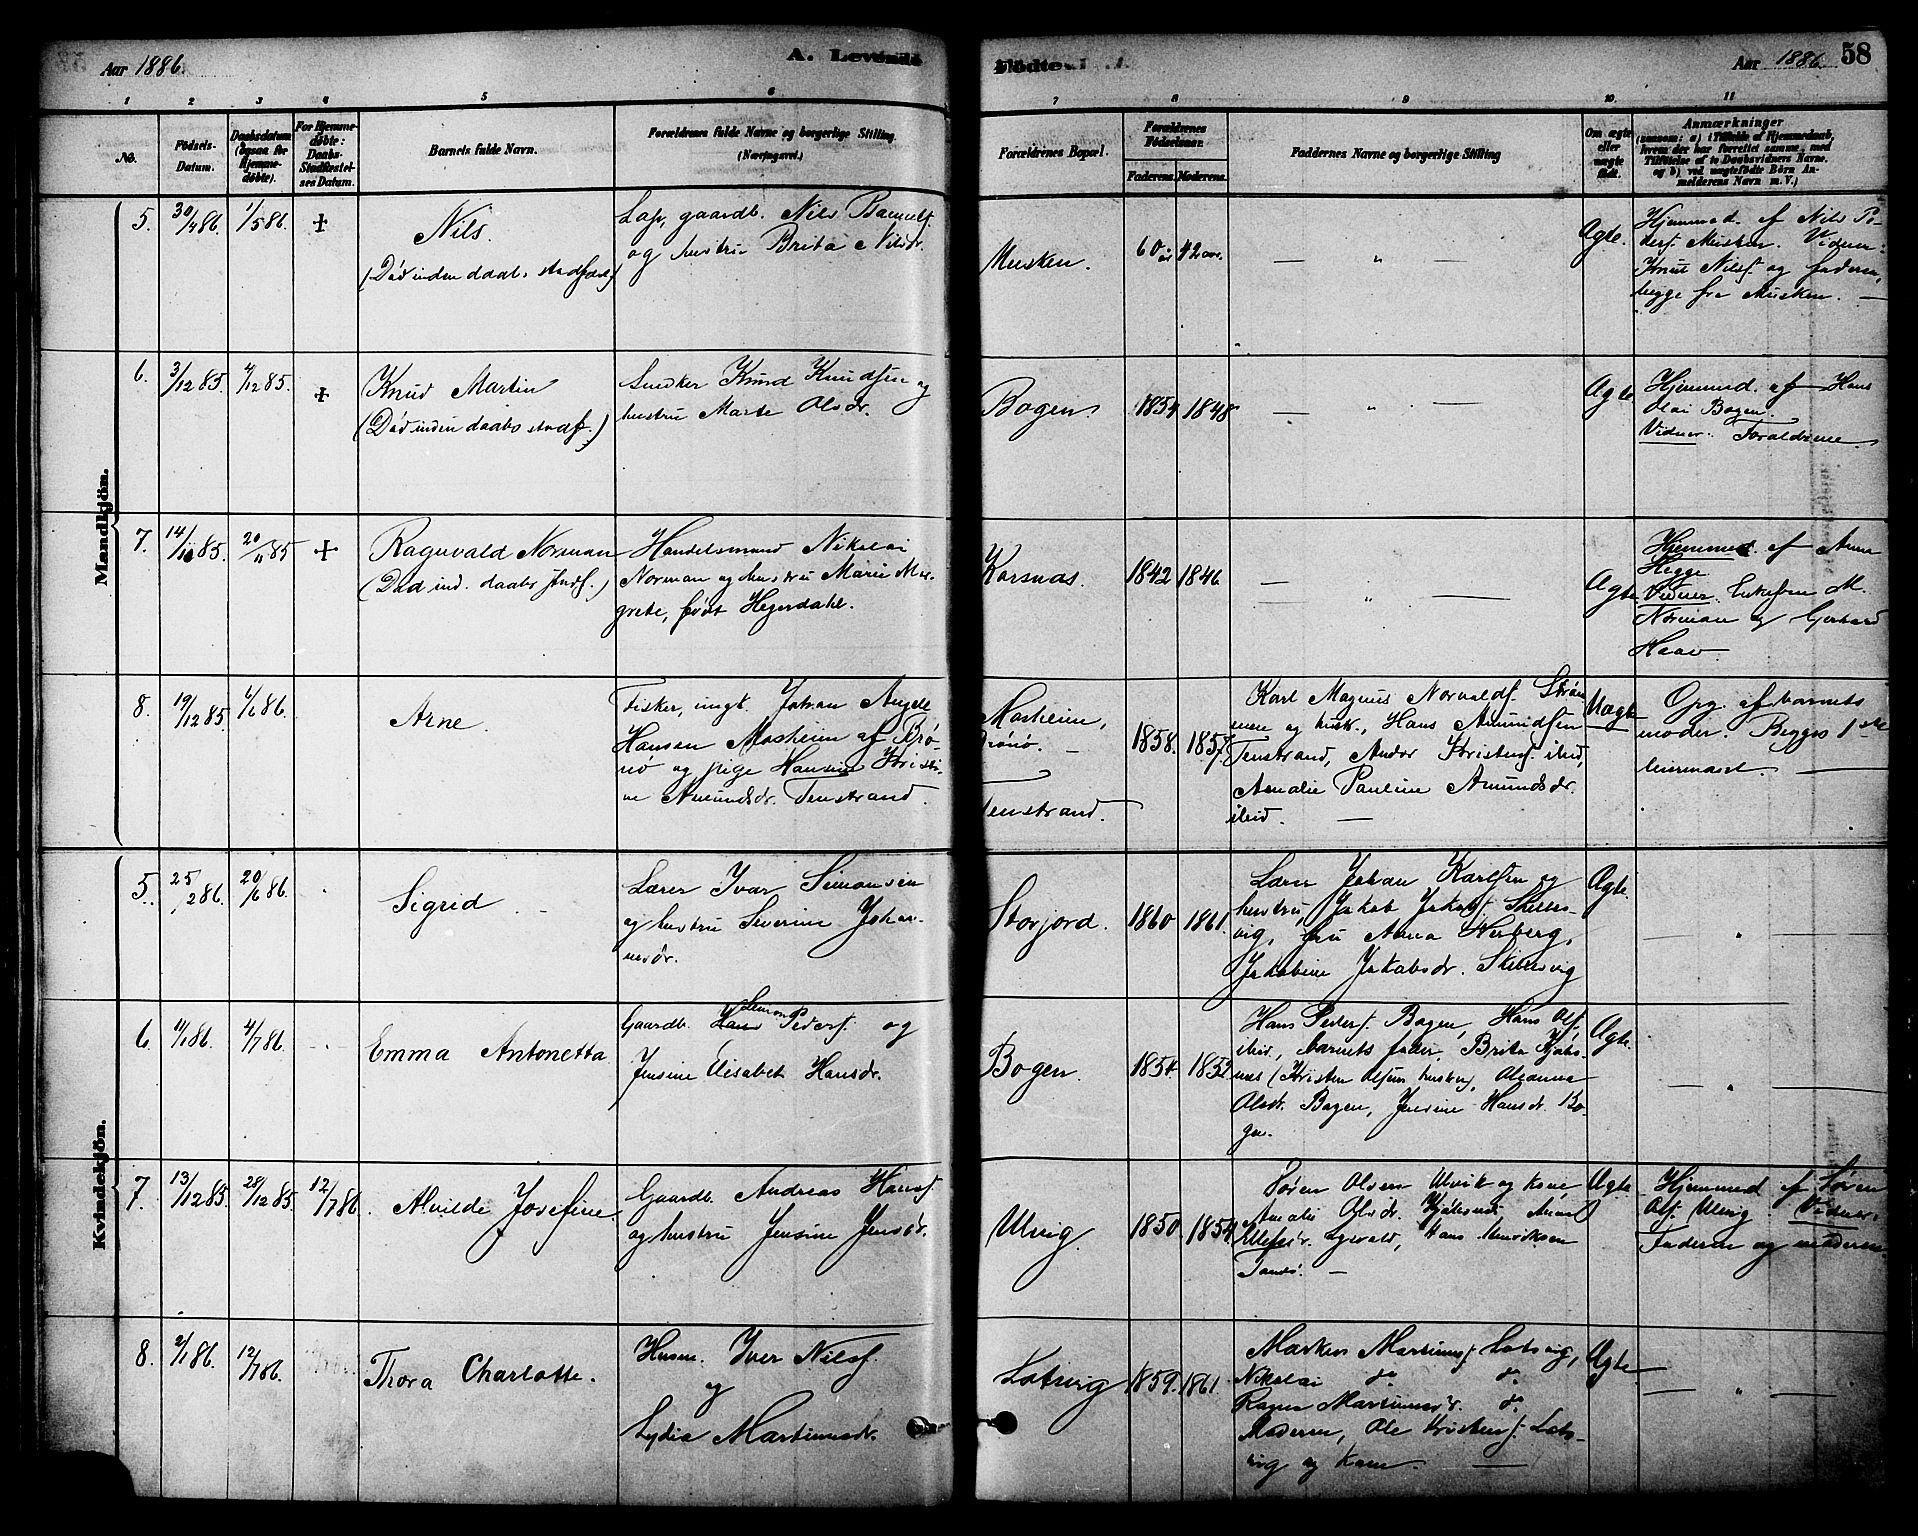 Aar 1886
A. Levende
Fødte
Aar 1886
58
1 2 3 4 5 6 7 8 9 10 11
No.
Fødsels-
Datum.
Daabsdatum
(ogsaa for
Hjemme-
døbte).
For Hjemme-
døbte:
Daabs-
Stadfæstel-
ses Datum.
Barnets fulde Navn.
Forældrenes fulde Navne og borgerlige Stilling.
(Næringsvei.)
Forældrenes Bopæl.
Forældrenes
Fødselsaar.
Faderens. Moderens.
Faddernes Navne og borgerlige Stilling
Om ægte
eller
uægte
født.
Anmærkninger
(saasom: a) i Tilfælde af Hjemmedaab,
hvem der har forrettet samme, med
Tilføielse af to Daabsvidners Navne.
og b) ved uægtefødte Børn An-
melderens Navn m. V.)
Mandkjön.
5. 30/4 86. 1/5 86. +
Nils.
(Död inden daabs stadfæst)
Lap, gaardb. Nils
og hustru Brita Nilsdr.
Musken.
60 år 42 aar.
— " —
Ægte.
Hjemmed. af Nils Pe-
ders. Musken. Vidner:
Knut Nils. og faderen,
begge fra Musken. —
6. 3/12 85. 4/12 85. +
Knud Martin
(Död inden daabs stadf.)
Snedker Knud Knudsen og
hustru Marte Olsdr.
Bogen
1854 1848
— " —
Ægte
Hjemmed. af Hans
Olai Bogen.
Vidner. Forældrene
7. 14/11 85. 20/11 85 +
Ragnvald Norman
(Död ind. daabs stadf.)
Handelsmand Nikolai
Norman og hustru Marie Mar-
grete, født Hegerdahl.
Korsnæs.
1842 1846
— " —
Ægte
Hjemmed. af Anna
Hegge
Vidner. Enkefru M.
Norman og Gerhard
Haav.
8. 19/12 85. 6/6 86.
Arne.
Fisker, ungk. Johan Angell
Hansen Mosheim af Brø-
nø og pige Hansine Kristi-
ne Amundsdr. Tenstrand.
Mosheim,
Brønø. —
Tenstrand.
1858. 1857.
Karl Magnus Norvalds. Strøm-
mene og hustr., Hans Amundsen
Tenstrand, Andor Kristens. ibid,
Amalie Pauline Amundsdr.
ibid. —
Uægte
Opg. af barnets
moder. Begges 1ste
leiermaal. —
Kvindekjön.
5. 25/2 86. 20/6 86.
Sigrid
Lærer Ivar Simonsen
og hustru Severine Johan-
nesdr.
Storjord.
1860 1861
Lærer Johan Karlsen og
hustru, Jakob Jakobs. Skibs-
vig, fru Anna Nerberg,
Jakobine Jakobsdr. Skibsvig
Ægte.
— " —
6. 11/1 86. 4/7 86.
Emma Antonetta
Gaardb. Simon Peders. og
Jensine Elisabet Hansdr.
Bogen.
1854. 1852
Hans Peders. Bogen, Hans Ols.
ibid., barnets fader, Brita Kjøbs-
nes (Kristen Olsens hustru), Oleanna
Olsdr. Bogen, Jensine Hansdr. Bo-
gen.
Ægte.
— " —
7. 13/12 85. 28/12 85. 12/7 86.
Alvilde Josefine.
Gaardb. Andreas Hans.
og hustru Jensine Jensdr.
Ulvig.
1850. 1854
Søren Olsen Ulvik og kone
Amalie Olsdr. Kjøbsnes Anne
Ellefsdr. Hans Henriksen
Tandø. —
Ægte
Hjemmed af Søren
Ols. Ulvig. Vidner:
Faderen og moderen
8. 2/1 86. 12/7 86.
Thora Charlotte.
Husm. Iver Nils.
og
Lydia Martinusdr.
Lotvig
1859. 1861.
Markus Martinus. Lotsvig,
Nikolai do do
Ragna Martinusdr. do
Moderen, Ole Kristens. Lots-
vig og kone. —
Ægte
— " —